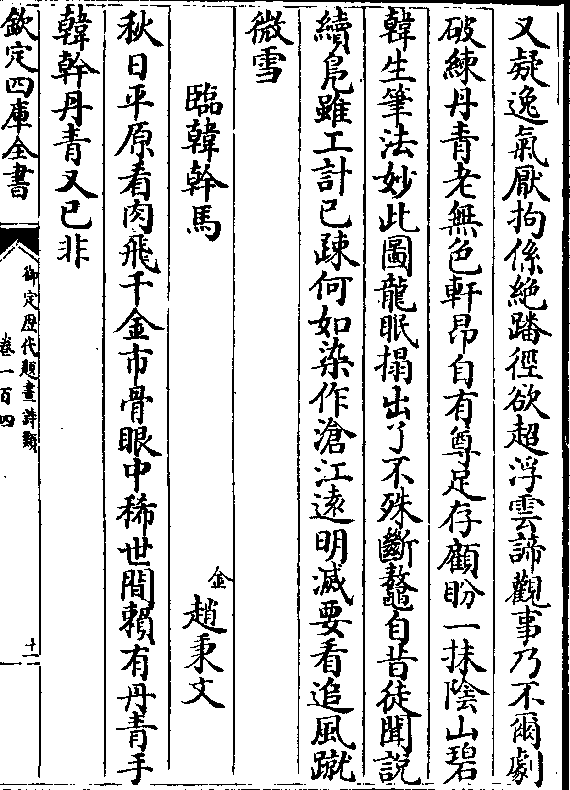 又疑逸氣厭拘係絶蹯徑欲超浮雲諦觀事乃不爾劇
破練丹青老無色軒昂自有尊足存顧盼一抹陰山碧
韓生筆法妙此圖龍眠搨出了不殊斷鼇自昔徒聞說
續鳬雖工計已踈何如染作滄江逺明滅要看追風蹴
微雪
臨韓幹馬
金趙秉文
秋日平原看肉飛千金市骨眼中稀世間賴有丹青手
韓幹丹青又已非
欽定四庫全書
御定歴代題畫詩類
卷一百四
十